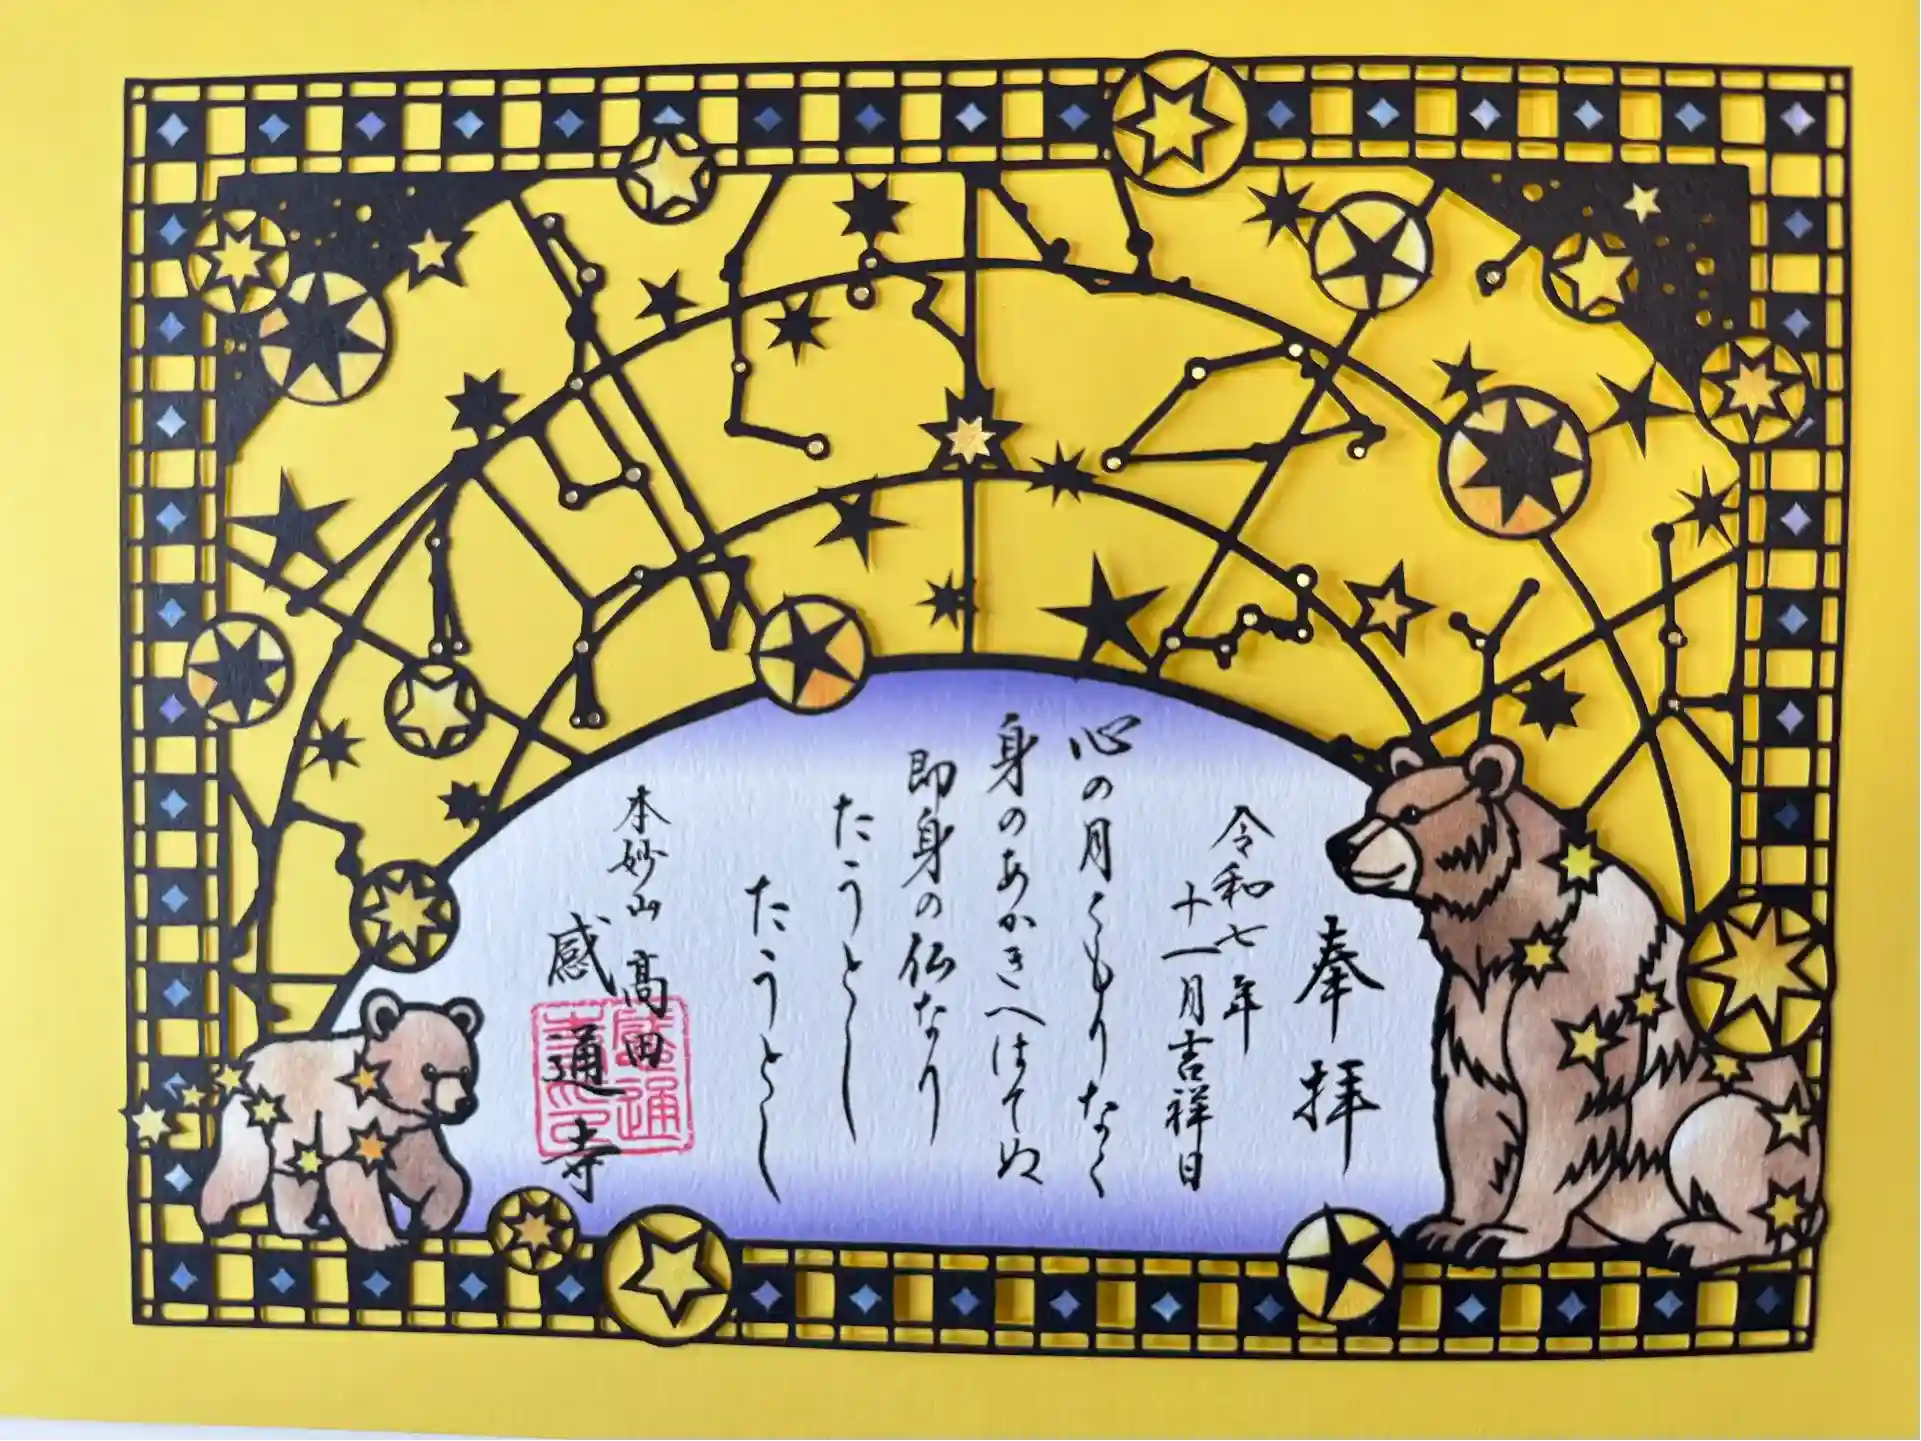 奉拝
令和七年
十一月吉祥日
心の月くもりなく
身のあかきへはてぬ
即身の仏なり
たうとし
たうとし
本妙山
高田
感通寺